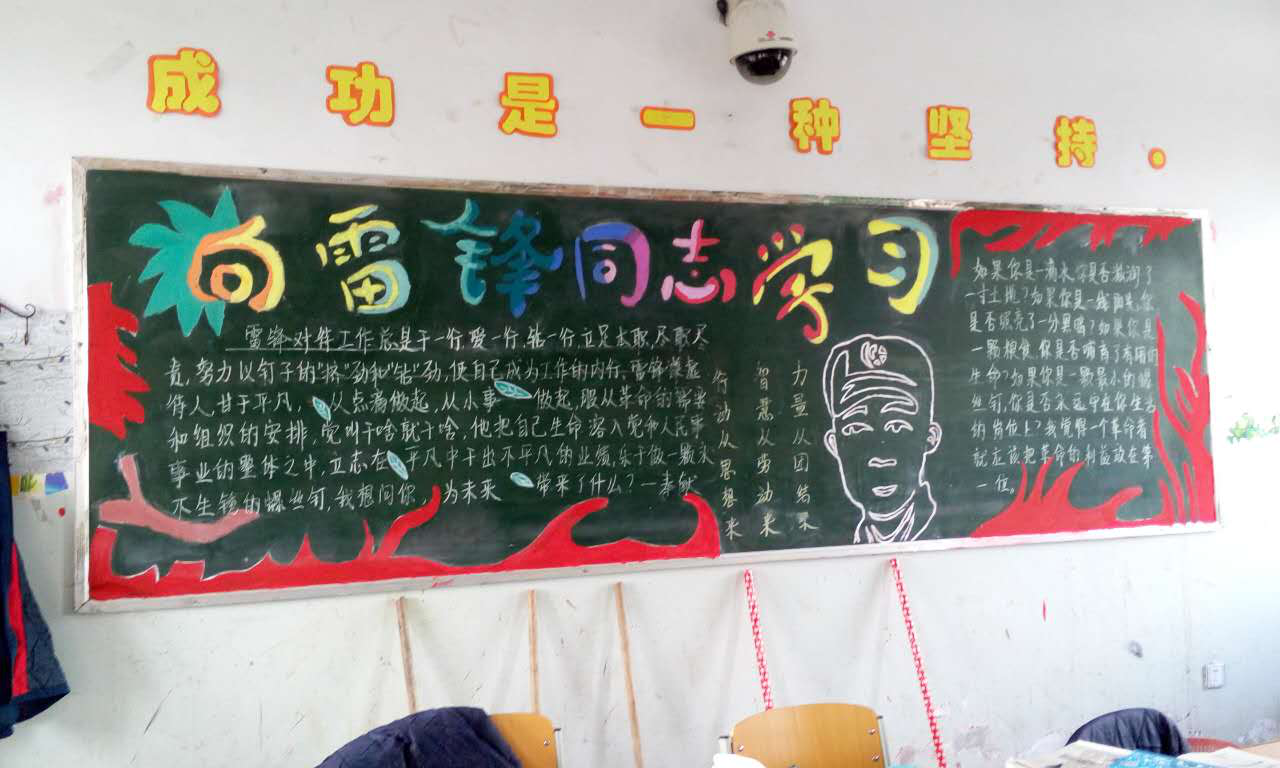 成功是一种坚持。
向雷锋同志学习
雷锋对待工作总是干一行爱一行,钻一行,立足本职,尽职尽
责,努力以钉子的"挤"劲和"钻"劲,使自己成为工作的内行,雷锋
待人,甘于平凡,从点滴做起,从小事做起,服从革命的需要
和组织的安排,党叫干啥就干啥,他把自己生命溶入党和人民事
事业的整体之中,立志在平凡中干出不平凡的业绩,乐于做一颗永
不生锈的螺丝钉,我想问你,为未来带来了什么?一奉献
行动从思想来
智慧从劳动来
力量从团结来
如果你是一滴水,你是否滋润了
一寸土地?如果你是一线阳光,你
是否照亮了一分黑暗?如果你是
一颗粮食,你是否哺育了有用的
生命?如果你是一颗最小的螺
丝钉,你是否永远守在你生活
的岗位上?我觉得一个革命者
就应该把革命的利益放在第
一位。